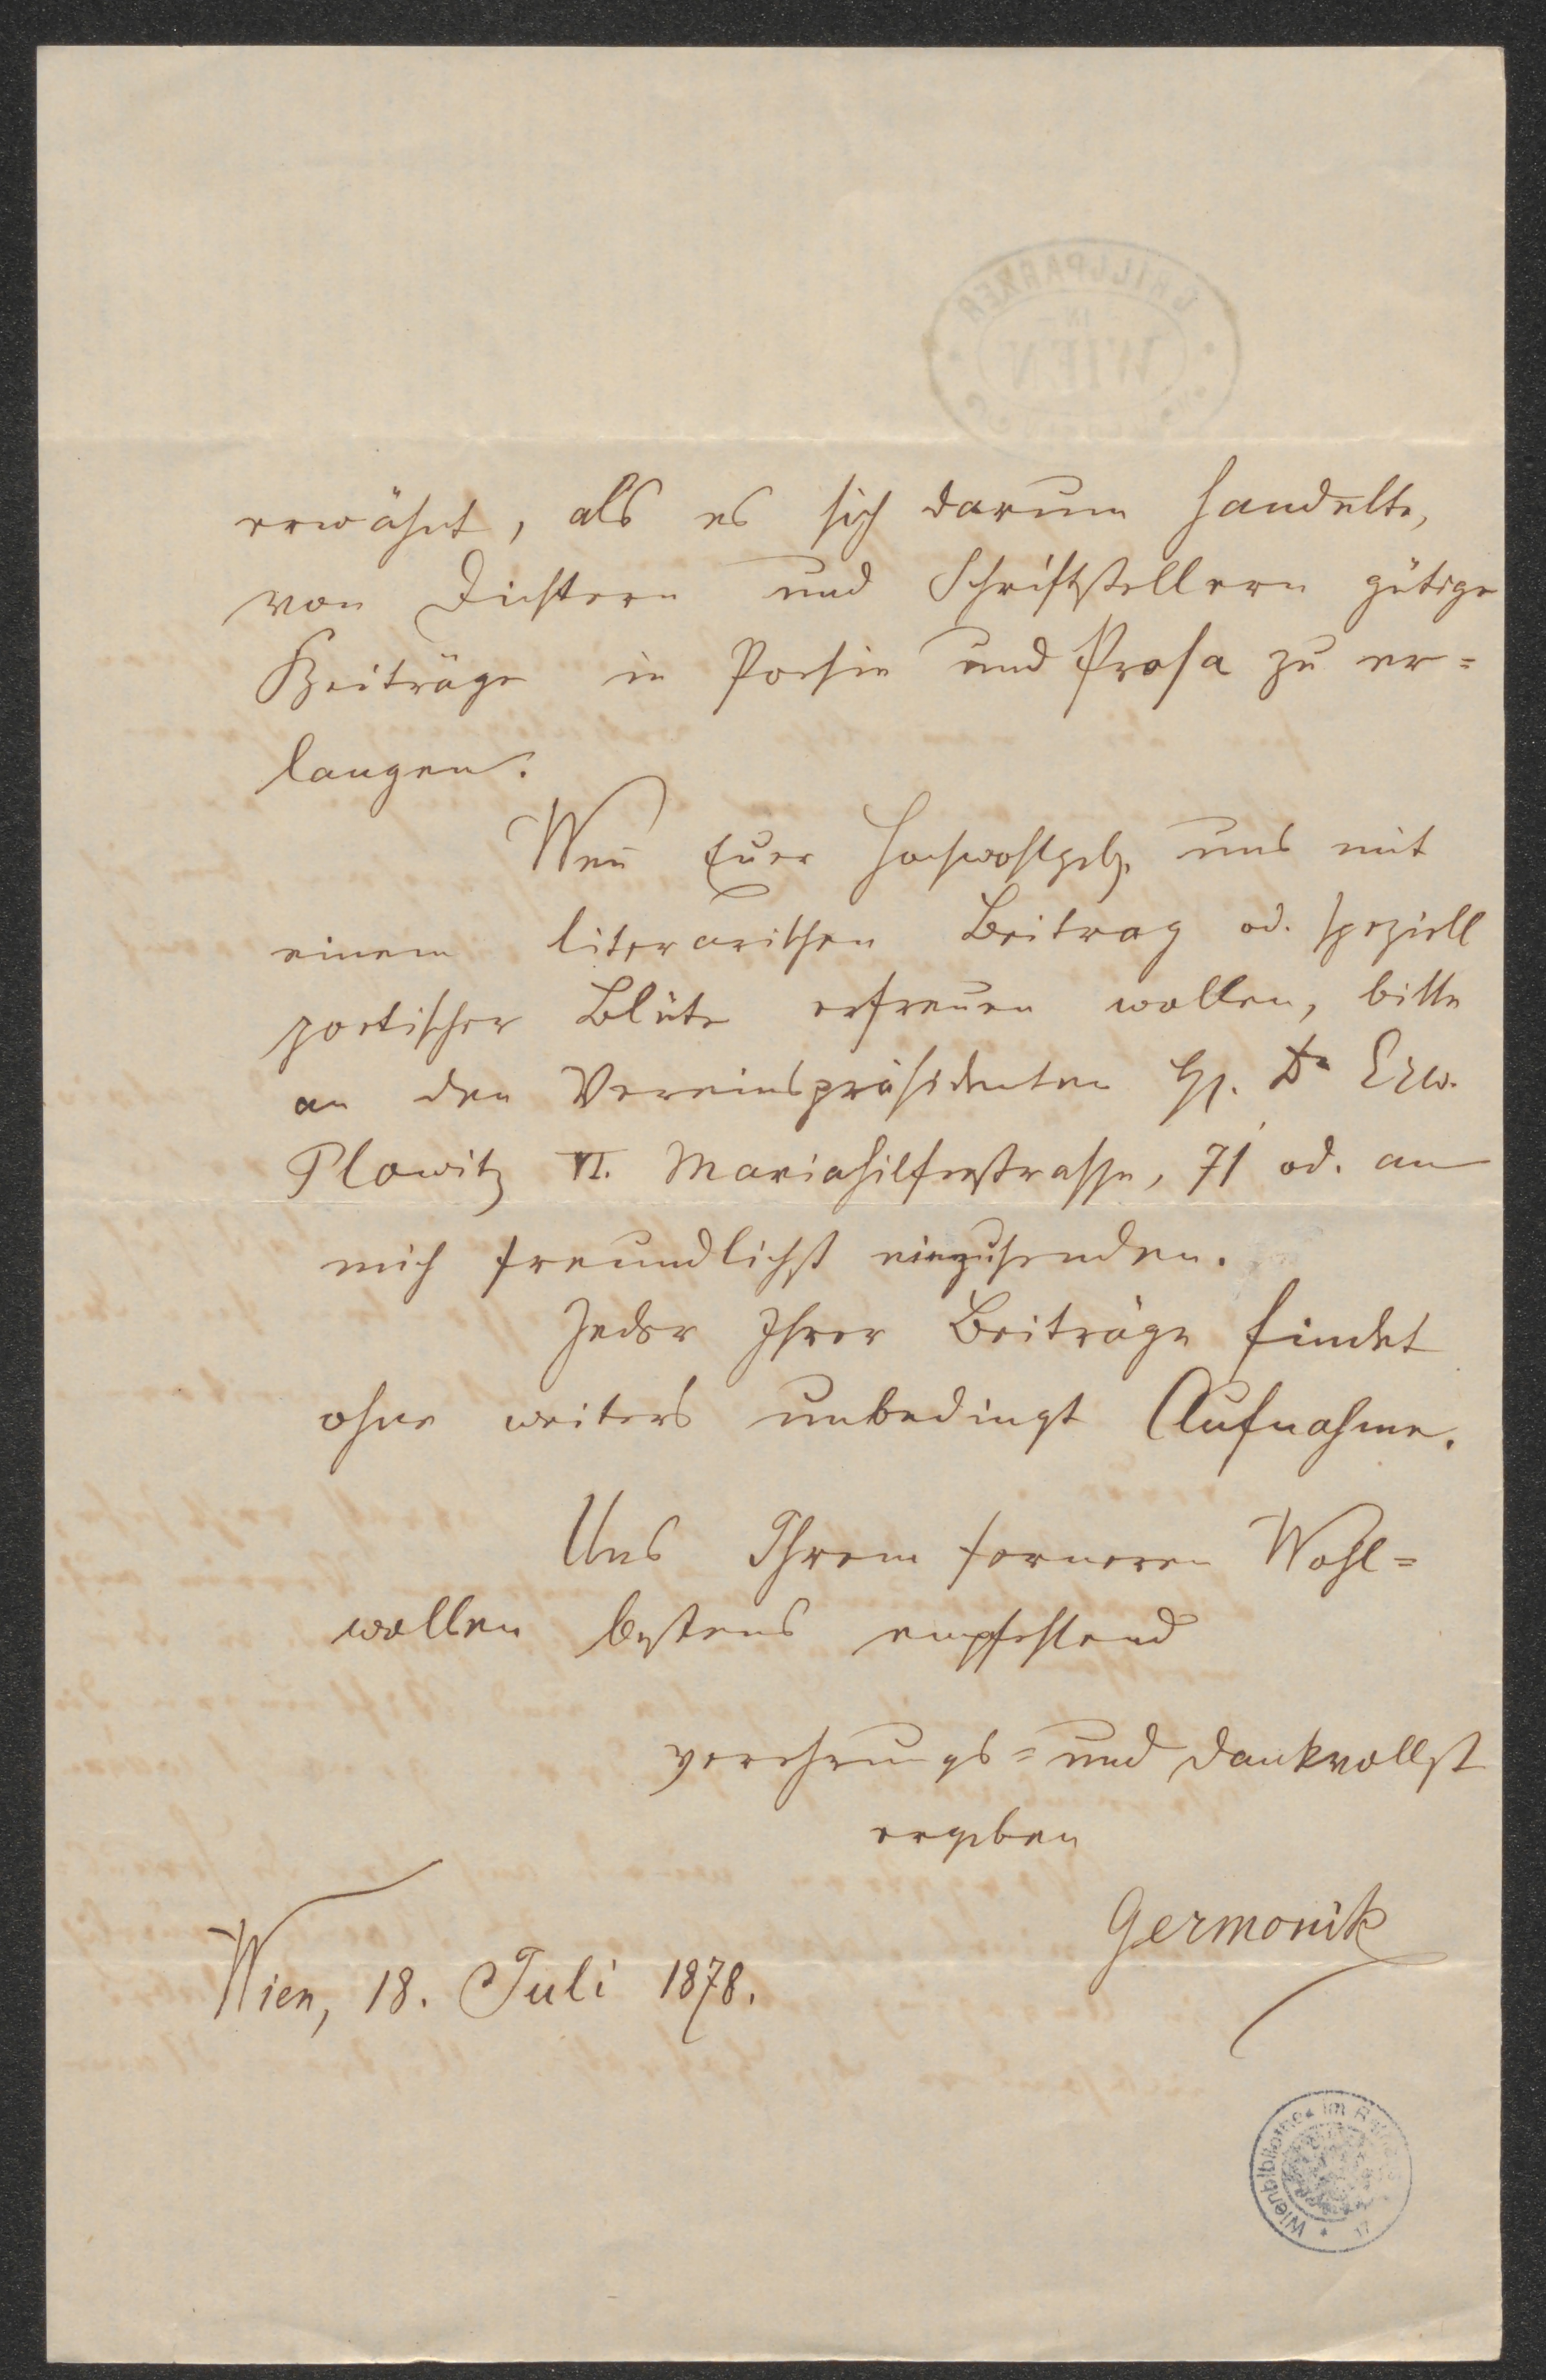 GRILLPARZER
IN
WIEN
erwähnt, als es sich darum handelte,
von Dichtern und Schriftstellern gütige
Beiträge in Poesie und Prosa zu er=
langen.
Weñ Euer Hochwohlgeb. uns mit
einem literarischen Beitrag od. speziell
poetischer Blüte erfreuen wollen, bitte
an den Vereinspräsidenten H. Dr
Plowitz VI. Mariahilferstrasse, 71 od. an
mich freundlichst einzusenden.
Jeder Ihrer Beiträge findet
ohne weiters unbedingt Aufnahme.
Uns Ihrem ferneren Wohl=
wollen bestens empfehlend
verehrungs= und dankvollst
ergeben
Germonik
Wien, 18. Juli 1878.
Wienbibliothek im Rathaus